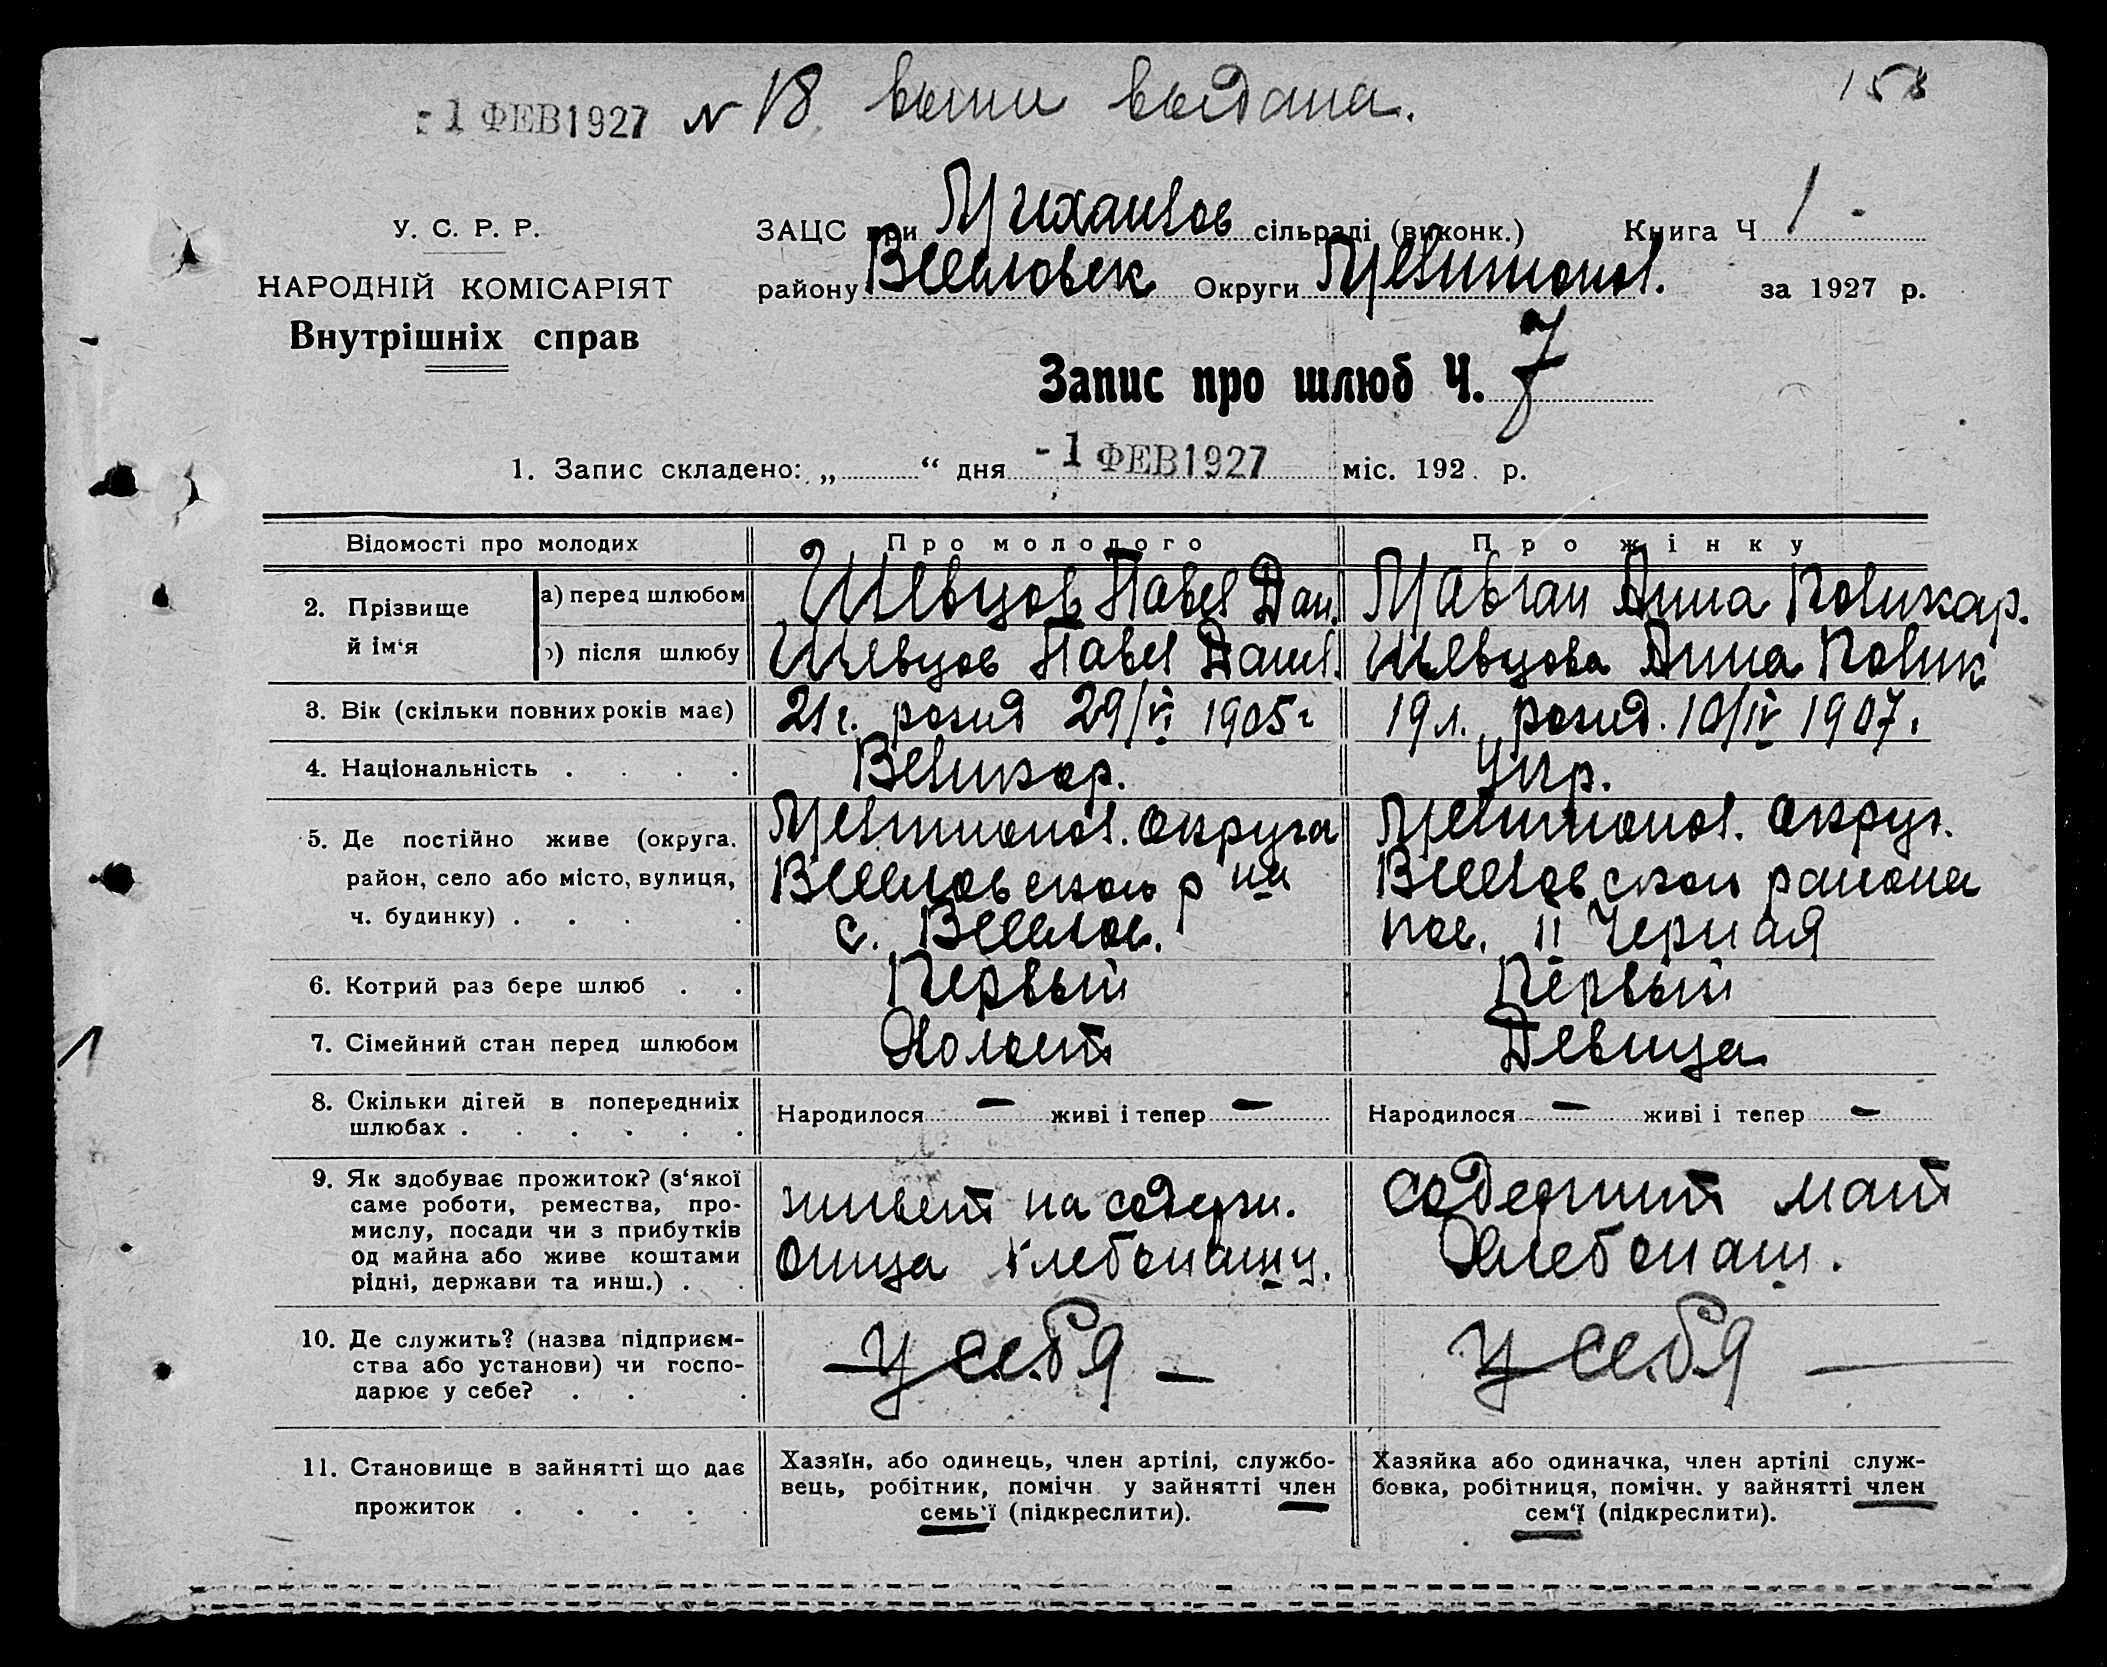 - 1 ФЕВ 1927 № 18 выпи выдана. 158
У. С. Р. Р.
НАРОДНІЙ КОМІСАРІЯТ
Внутрішніх справ
ЗАЦС при Михайлов сільраді (виконк.) Книга Ч 1 -
району Веселовск Округи Мелитопол. за 1927 р.
Запис про шлюб Ч. 7
1. Запис складено: „ “ дня - 1 ФЕВ 1927 міс. 192 . р.
Відомості про молодих Про молодого Про жінку
2. Прізвище й ім‘я
а) перед шлюбом Шевцов Павел Дан. Мавган Анна Поликар.
б) після шлюбу Шевцов Павел Данил. Шевцова Анна Полик
3. Вік (скільки повних років має) 21 г. рожд 29/VI 1905 г 19 л. рожд. 10/IV 1907.
4. Національність . . . . Великор. Укр.
5. Де постійно живе (округа, район, село або місто, вулиця, ч. будинку) . . . .
Мелитопол. Округа
Веселовского р на
с. Веселов.
Мелитопол. Округ.
Веселовского района
пос. II Черная
6. Котрий раз бере шлюб . . Первый Первый
7. Сімейний стан перед шлюбом Холост Девица
8. Скільки дітей в попередниіх шлюбах . . . . . . Народилося — живі і тепер — Народилося — живі і тепер —
9. Як здобуває прожиток? (з‘якої
саме роботи, ремества, про-
мислу, посади чи з прибутків
од майна або живе коштами
рідні, держави та инш.) . .
живет на содерж.
отца хлебопашц.
содержит мат
Хлебопаш.
10. Де служить? (назва підприєм-
ства або установи) чи госпо-
дарює у себе? . . .
у себя —
у себя —
11. Становище в зайнятті що дає
прожиток . . . . .
Хазяїн, або одинець, член артілі, службо-
вець, робітник, помічн. у зайнятті член
семь‘ї (підкреслити).
Хазяйка або одиначка, член артілі служ-
бовка, робітниця, помічн. у зайнятті член
сем‘ї (підкреслити).